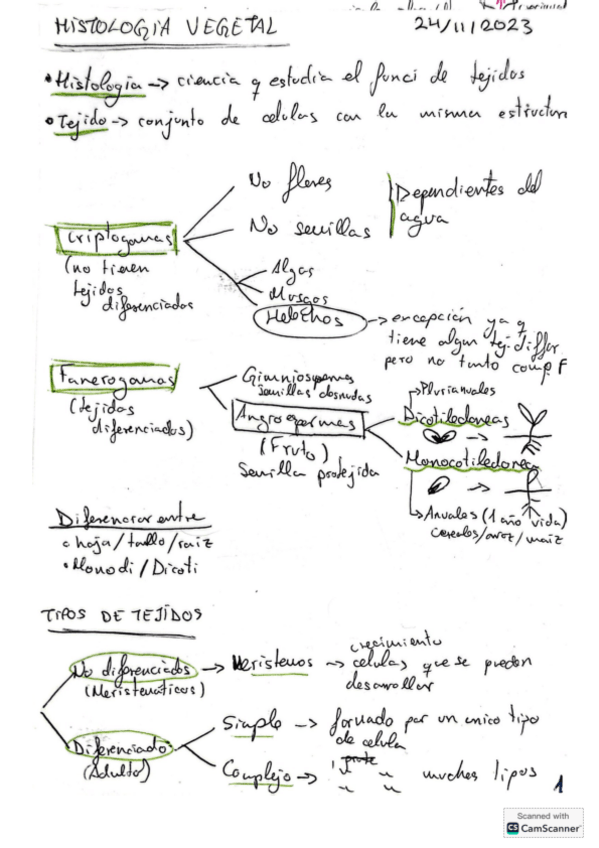 HISTOLOGIA VEGETAL 24/11/2023
• Histologia → ciencia q estudia el funci de tejidos
• Tejido → conjunto de celulas con la misma estructura
No flores
Dependientes del
agua
No semillas
Criptogamas
(no tienen
tejidos
diferenciados
Algas
Musgos
Helechos → excepción ya q
tiene algun tej. differ
pero no tanto comp. F
Fanerogamas
(tejidos
diferenciados)
Gimniospermas
semillas desnudas
Angiospermas
(Fruto)
Semilla protejida
Plurianuales
Dicotiledoneas
Monocotiledoneas
Anuales (1 año vida)
cereales/arroz/maiz
Diferenciar entre
hoja/tallo/raiz
• Monodi/Dicoti
TIPOS DE TEJIDOS
No diferenciados → Meristemos → celulas que se pueden
crecimiento
desarrollar
(Meristematicos)
Simple → formado por un unico tipo
de celula
Diferenciado
(Adulto)
Complejo → " " muchos tipos
" "
1
Scanned with
CS CamScanner